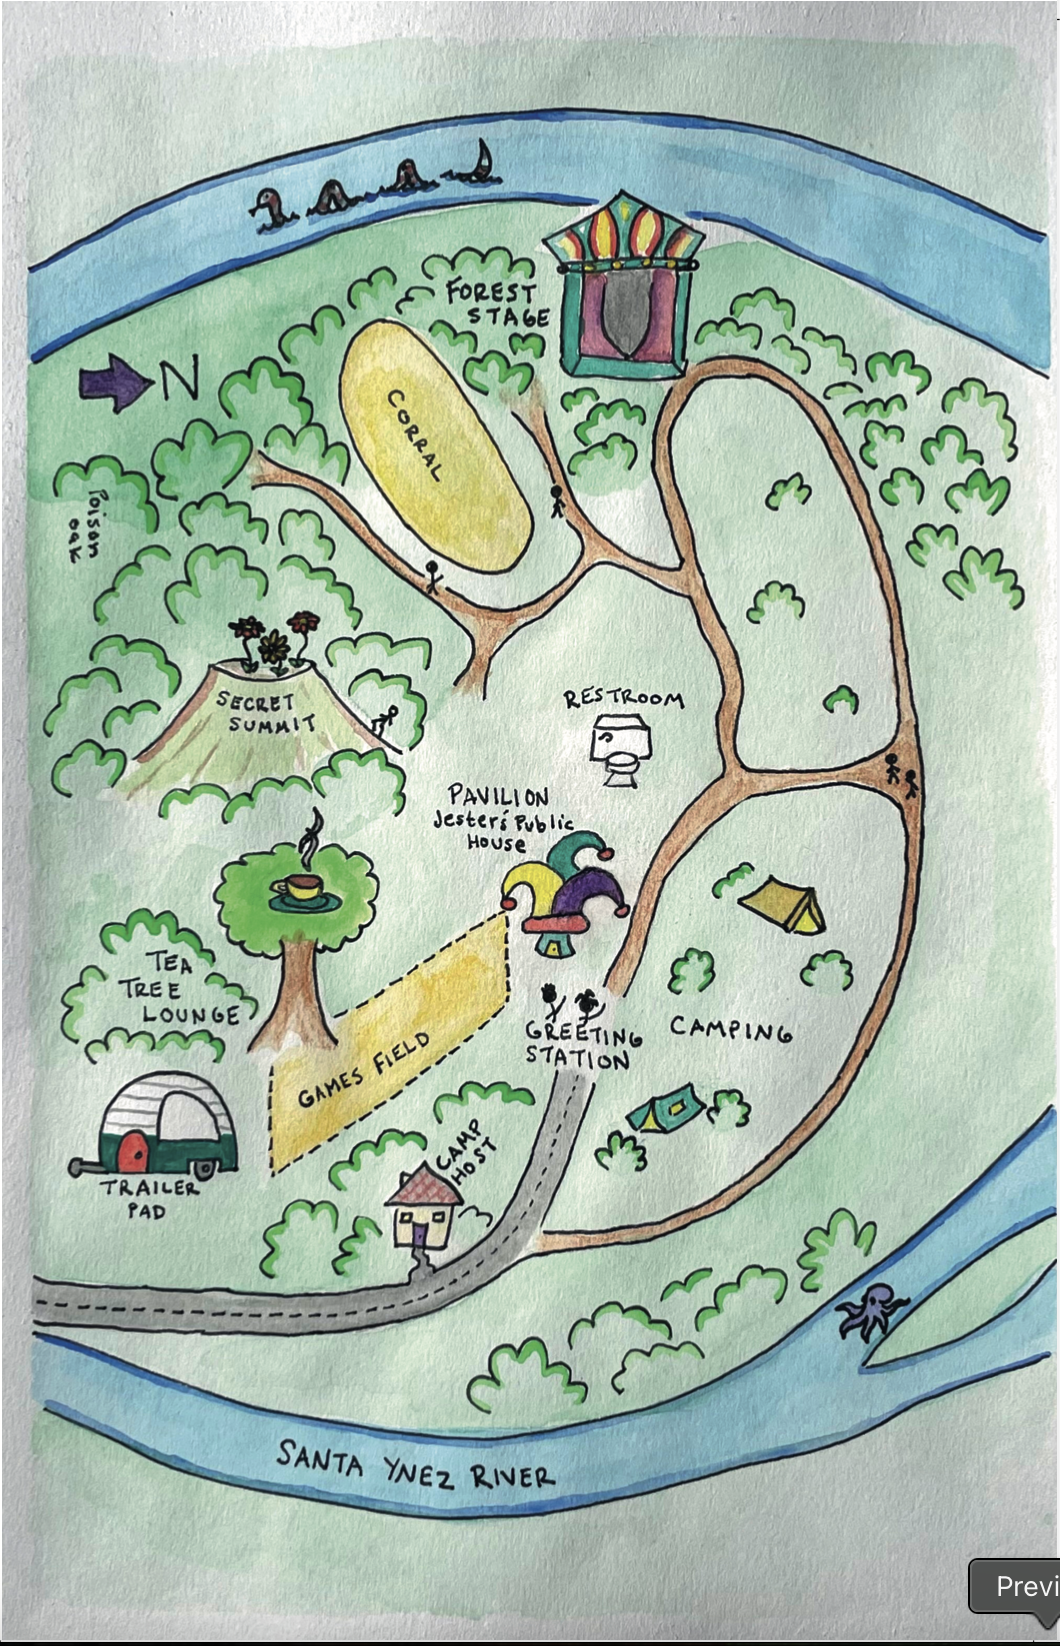 FOREST
STAGE
N
CORRAL
Poison
oak
SECRET
SUMMIT
RESTROOM
PAVILION
Jester's Public
House
TEA
TREE
LOUNGE
GREETING
STATION
CAMPING
GAMES FIELD
CAMP
HOST
TRAILER
PAD
SANTA YNEZ RIVER
Previ